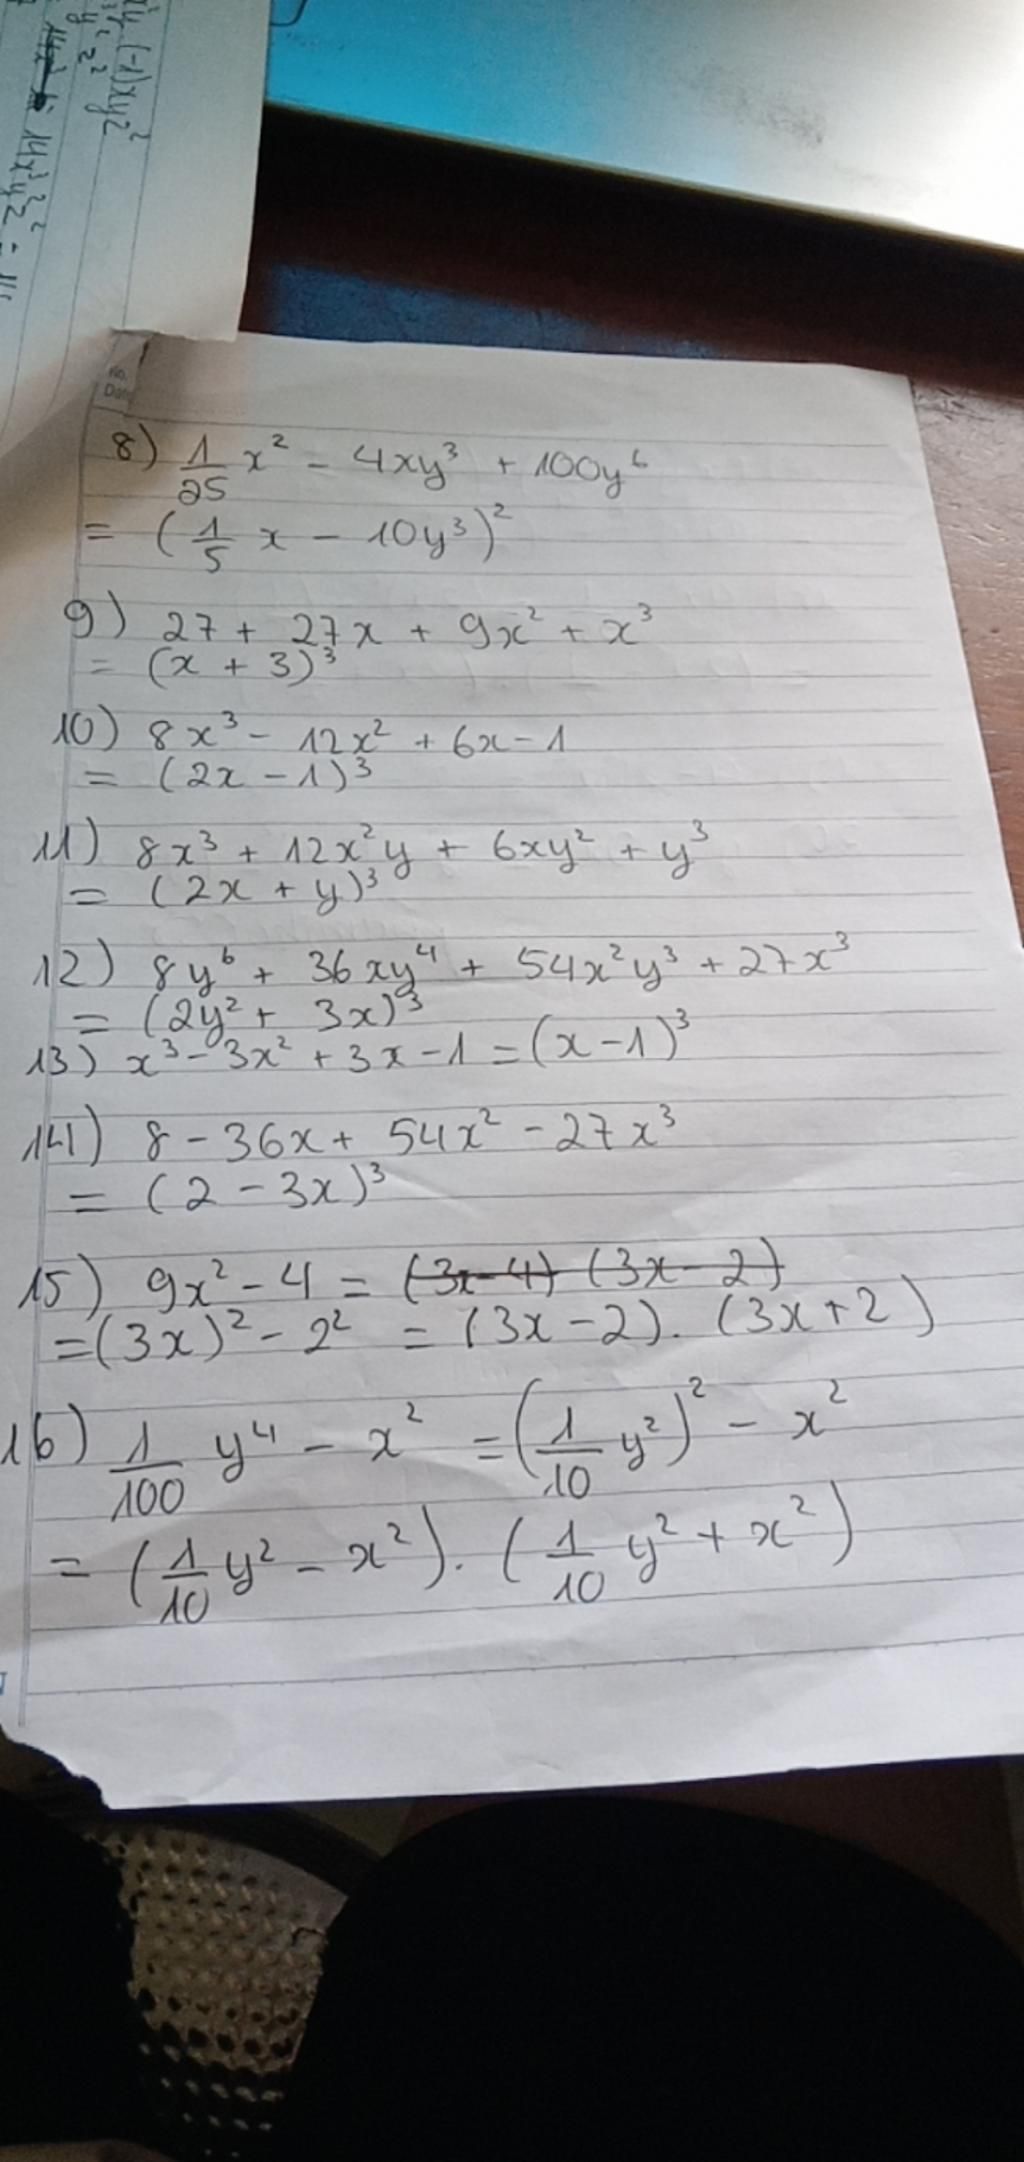 No.
Date
8) 1/25 x² - 4xy³ + 100y⁶
= (1/5 x - 10y³)²
9) 27 + 27x + 9x² + x³
= (x + 3)³
10) 8x³ - 12x² + 6x - 1
= (2x - 1)³
11) 8x³ + 12x²y + 6xy² + y³
= (2x + y)³
12) 8y⁶ + 36xy⁴ + 54x²y³ + 27x³
= (2y² + 3x)³
13) x³ - 3x² + 3x - 1 = (x - 1)³
14) 8 - 36x + 54x² - 27x³
= (2 - 3x)³
15) 9x² - 4 = (3x - 4) (3x - 2)
= (3x)² - 2² = (3x - 2) . (3x + 2)
16) 1/100 y⁴ - x² = (1/10 y²)² - x²
= (1/10 y² - x²) . (1/10 y² + x²)